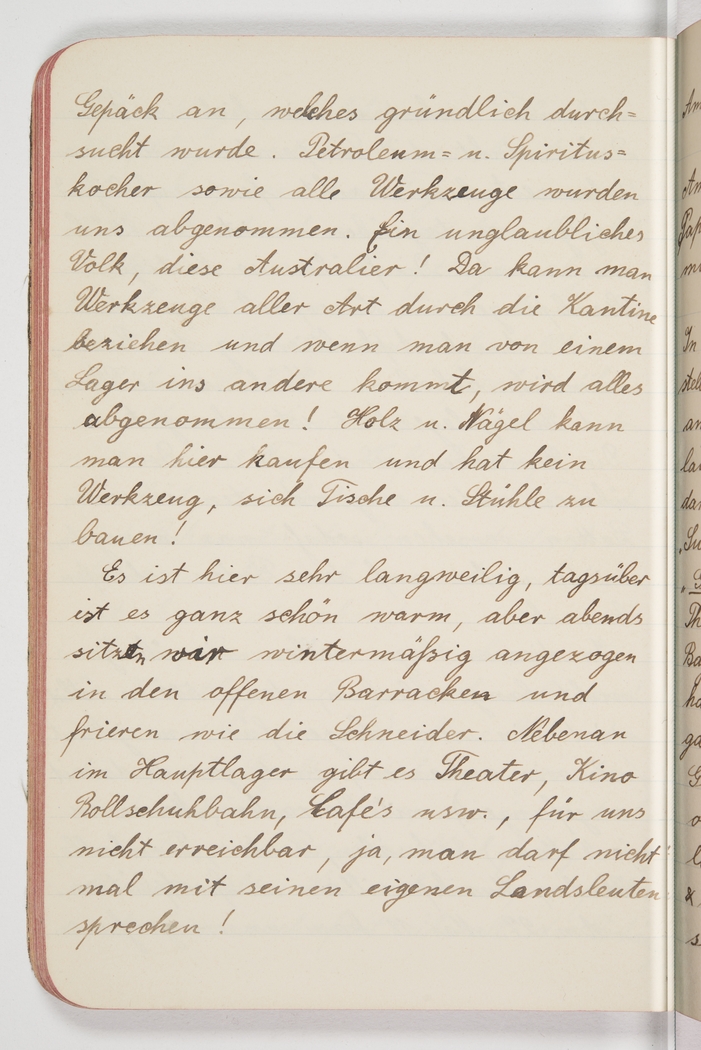 Gepäck an, welches gründlich durch=
sucht wurde. Petroleum= u. Spiritus=
kocher sowie alle Werkzeuge wurden
uns abgenommen. Ein unglaubliches
Volk, diese Australier! Da kann man
Werkzeuge aller Art durch die Kantine
beziehen und wenn man von einem
Lager ins andere kommt, wird alles
abgenommen! Holz u. Nägel kann
man hier kaufen und hat kein
Werkzeug, sich Tische u. Stühle zu
bauen!
Es ist hier sehr langweilig, tagsüber
ist es ganz schön warm, aber abends
sitzen wir wintermäßig angezogen
in den offenen Barracken und
frieren wie die Schneider. Nebenan
im Hauptlager gibt es Theater, Kino
Rollschuhbahn, Cafés usw., für uns
nicht erreichbar, ja, man darf nicht
mal mit seinen eigenen Landsleuten
sprechen!